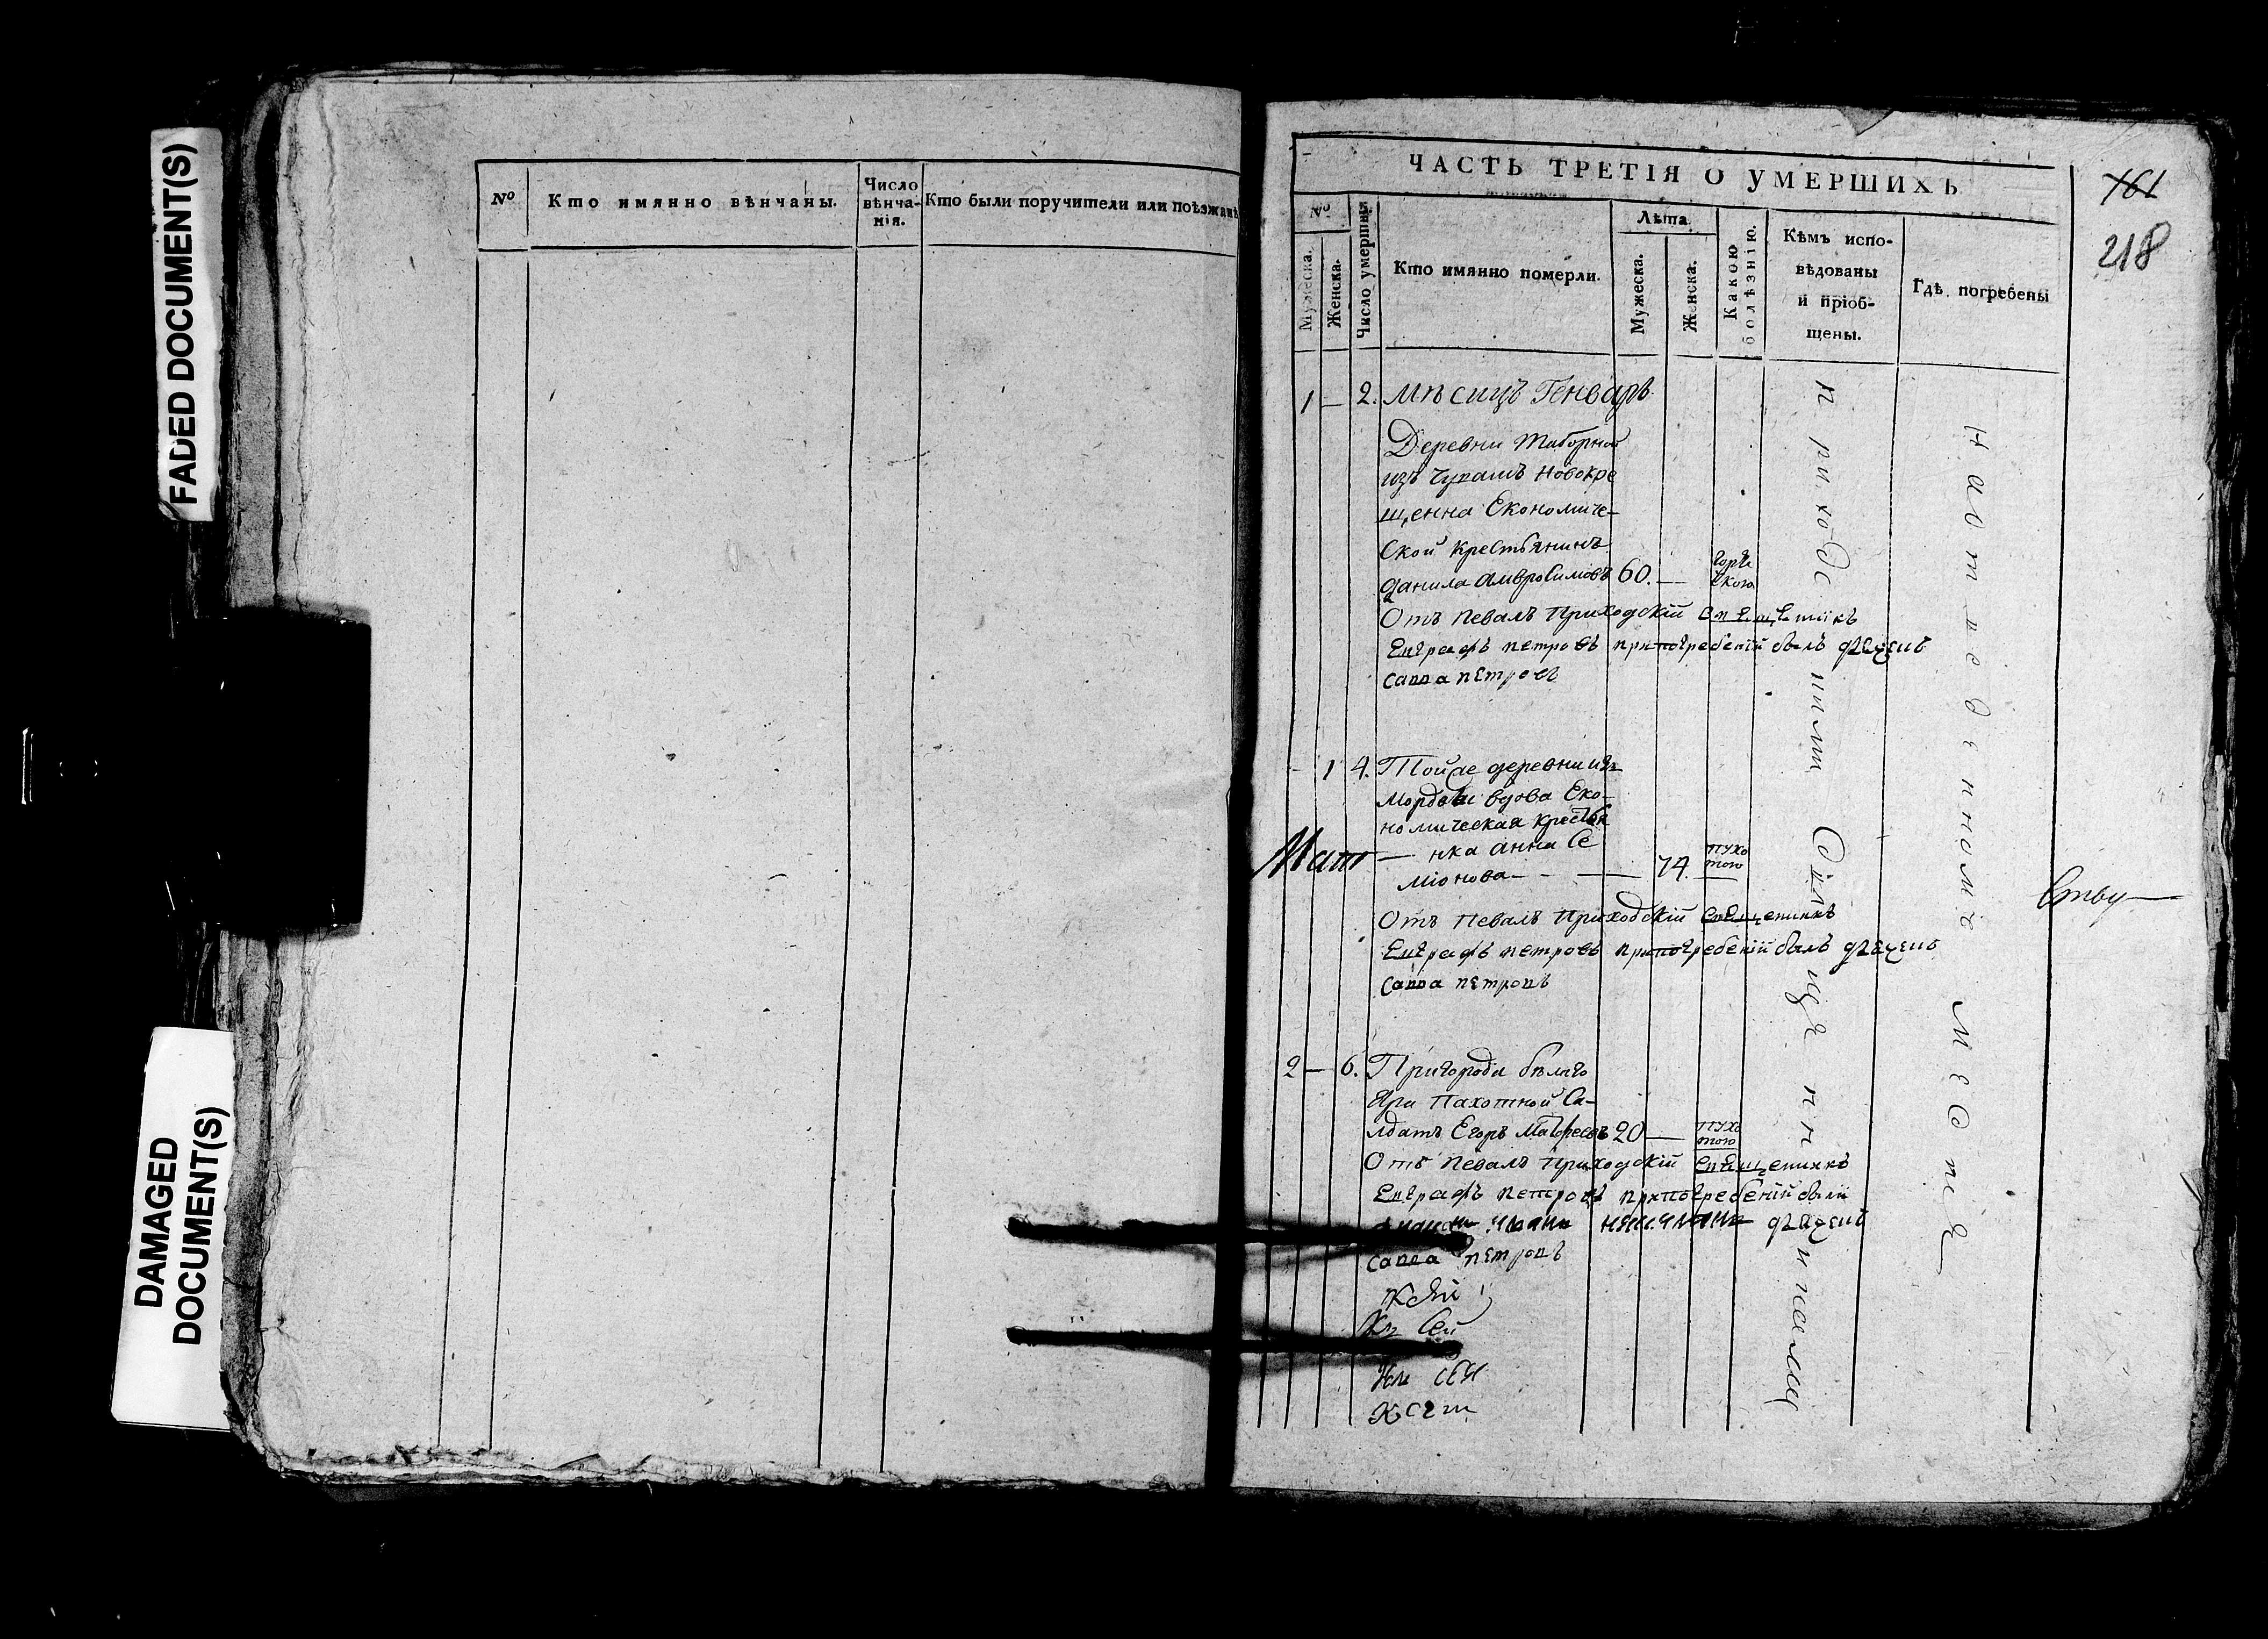 FADED DOCUMENT(S)
DAMAGED DOCUMENT(S)
№ Кто имянно вѣнчаны. Число вѣнча- нія. Кто были поручители или поѣзжанѣ
ЧАСТЬ ТРЕТІЯ О УМЕРШИХЪ
161
218
№ Мужеска. Женска. Число умертвія. Кто имянно померли. Лѣта. Мужеска. Женска. Какою болѣзнію. Кѣмъ испо- вѣдованы и пріоб- щены. Гдѣ погребены
1 — 2. мѣсяцъ Генварь
Деревни Таборной
изъ Чувашъ новокре
щенна Економиче-
ской крестьянинъ
Данила Амвросимовъ 60. — горя чкою
Отъ певалъ Приходскій священникъ
Евграфъ петровъ припогребеній былъ
савва петровъ
- 1 4. Тойже деревни изъ
Мордвы вдова Еко-
номическая крестья
нка анна Се
міонова — — 74. пухо тою
Отъ певалъ Приходскій священникъ
Евграфъ петровъ припогребеній былъ
савва петровъ
2 — 6. Пригорода бѣлаго
Яра Пахотной Са-
лдатъ Егоръ Матфеевъ 20 — пухо тою
Отъ певалъ Приходскій священникъ
Евграфъ петровъ припогребеній были
савва петровъ
приходскими священниками
На отведенномъ месте
ству